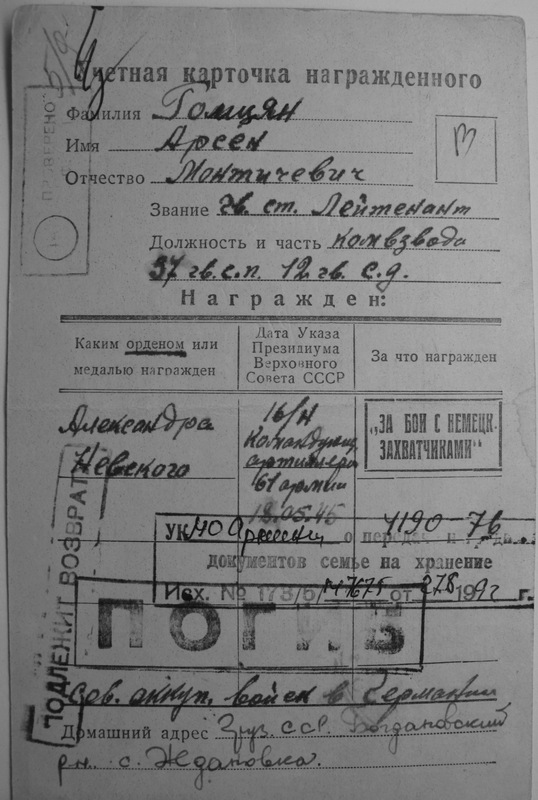 Учетная карточка награжденного
ПРОВЕРЕНО
Фамилия Гомцян
Имя Арсен
Отчество Монтичевич
В
Звание гв. ст. Лейтенант
Должность и часть комвзвода
37 гв.с.п. 12 гв. с.д.
Награжден:
Каким орденом или медалью награжден
Дата Указа
Президиума
Верховного
Совета СССР
За что награжден
Александра
Невского
16/н
Командующ.
артиллери
61 армии
18.05.45
„ЗА БОИ С НЕМЕЦК.
ЗАХВАТЧИКАМИ“
ПОДЛЕЖИТ ВОЗВРАТУ
УК МО Армении о
документов семье на хранение
Исх. № 173/5/ от 199 г.
ПОГИБ
Сов. оккуп. войск в Германии
Домашний адрес Груз. ССР. Богдановский
рн. с. Ждановка.